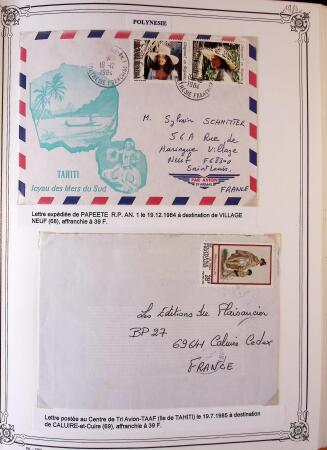 POLYNESIE
1984
1984
M. Sylvain SCHMITTER
56A Rue de
Village
Neuf F68300
Saint Louis.
FRANCE
PAR AVION
TAHITI
Joyau des Mers du Sud
Lettre expédiée de PAPEETE R.P. AN. 1 le 19.12.1984 à destination de VILLAGE
NEUF (68), affranchie à 39 F.
Les Editions du Plaisancier
BP 27
69641 Caluire Cedex
FRANCE
Lettre postée au Centre de Tri Avion-TAAF (Ile de TAHITI) le 19.7.1985 à destination
de CALUIRE-et-Cuire (69), affranchie à 39 F.